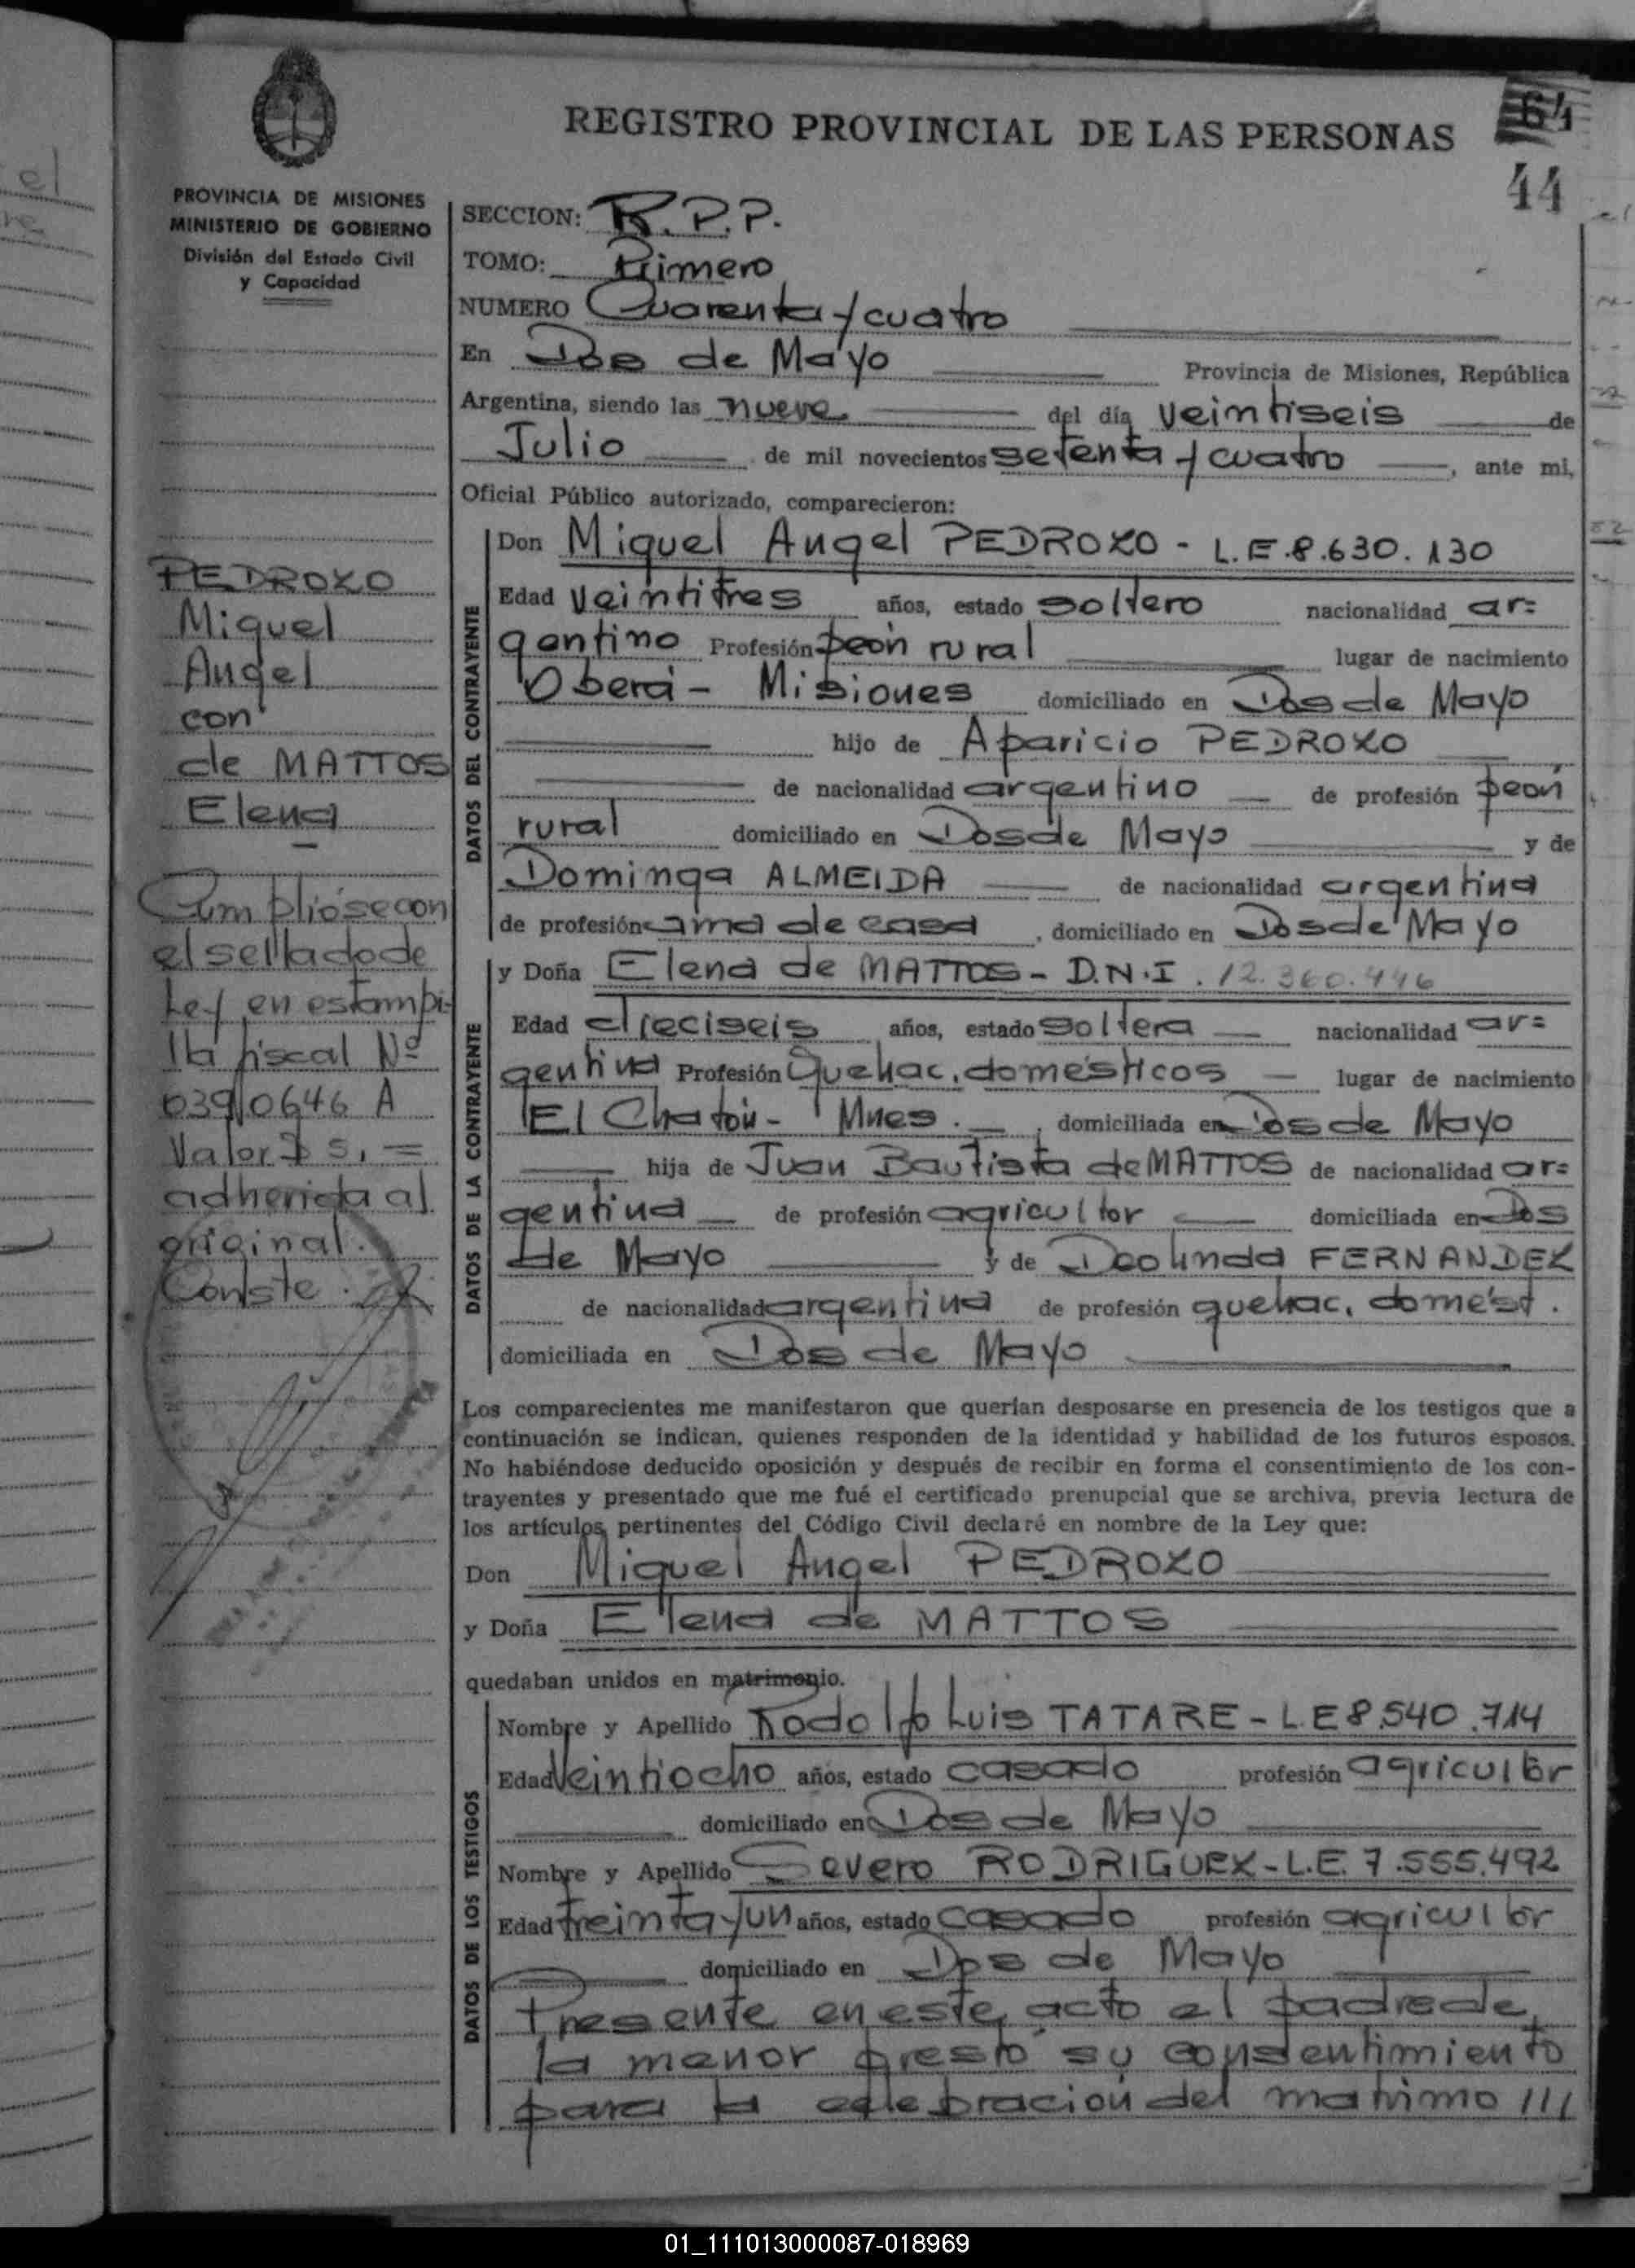 REGISTRO PROVINCIAL DE LAS PERSONAS
64
44
PROVINCIA DE MISIONES
MINISTERIO DE GOBIERNO
División del Estado Civil
y Capacidad
SECCION: R.P.P.
TOMO: Primero
NUMERO Cuarenta y cuatro
En Dos de Mayo Provincia de Misiones, República
Argentina, siendo las nueve del día veintiseis de
Julio de mil novecientos setenta y cuatro, ante mi,
Oficial Público autorizado, comparecieron:
PEDROZO
Miguel
Angel
con
de MATTOS
Elena
Cumplióse con
el sellado de
Ley en estampi-
lla fiscal Nº
0390646 A
Valor $ 5,=
adherida al
original.
Conste.
DATOS DEL CONTRAYENTE
Don Miguel Angel PEDROZO - L.E.8.630.130
Edad veintitres años, estado soltero nacionalidad ar=
gentino Profesión peón rural lugar de nacimiento
Oberá - Misiones domiciliado en Dos de Mayo
hijo de Aparicio PEDROZO
de nacionalidad argentino de profesión peón
rural domiciliado en Dos de Mayo y de
Dominga ALMEIDA de nacionalidad argentina
de profesión ama de casa, domiciliado en Dos de Mayo
DATOS DE LA CONTRAYENTE
y Doña Elena de MATTOS - D.N.I. 12.360.446
Edad dieciseis años, estado soltera nacionalidad ar=
gentina Profesión Quehac. domésticos lugar de nacimiento
El Chatón - Mnes. domiciliada en Dos de Mayo
hija de Juan Bautista de MATTOS de nacionalidad ar=
gentina de profesión agricultor domiciliada en Dos
de Mayo y de Deolinda FERNANDEZ
de nacionalidad argentina de profesión quehac. domést.
domiciliada en Dos de Mayo
Los comparecientes me manifestaron que querían desposarse en presencia de los testigos que a
continuación se indican, quienes responden de la identidad y habilidad de los futuros esposos.
No habiéndose deducido oposición y después de recibir en forma el consentimiento de los con-
trayentes y presentado que me fué el certificado prenupcial que se archiva, previa lectura de
los artículos pertinentes del Código Civil declaré en nombre de la Ley que:
Don Miguel Angel PEDROZO
y Doña Elena de MATTOS
quedaban unidos en matrimonio.
DATOS DE LOS TESTIGOS
Nombre y Apellido Rodolfo Luis TATARE - L.E 8.540.714
Edad Veintiocho años, estado casado profesión agricultor
domiciliado en Dos de Mayo
Nombre y Apellido Severo RODRIGUEZ - L.E. 7.555.492
Edad treinta y un años, estado casado profesión agricultor
domiciliado en Dos de Mayo
Presente en este acto el padre de
la menor prestó su consentimiento
para la celebración del matrimo ///
01_111013000087-018969